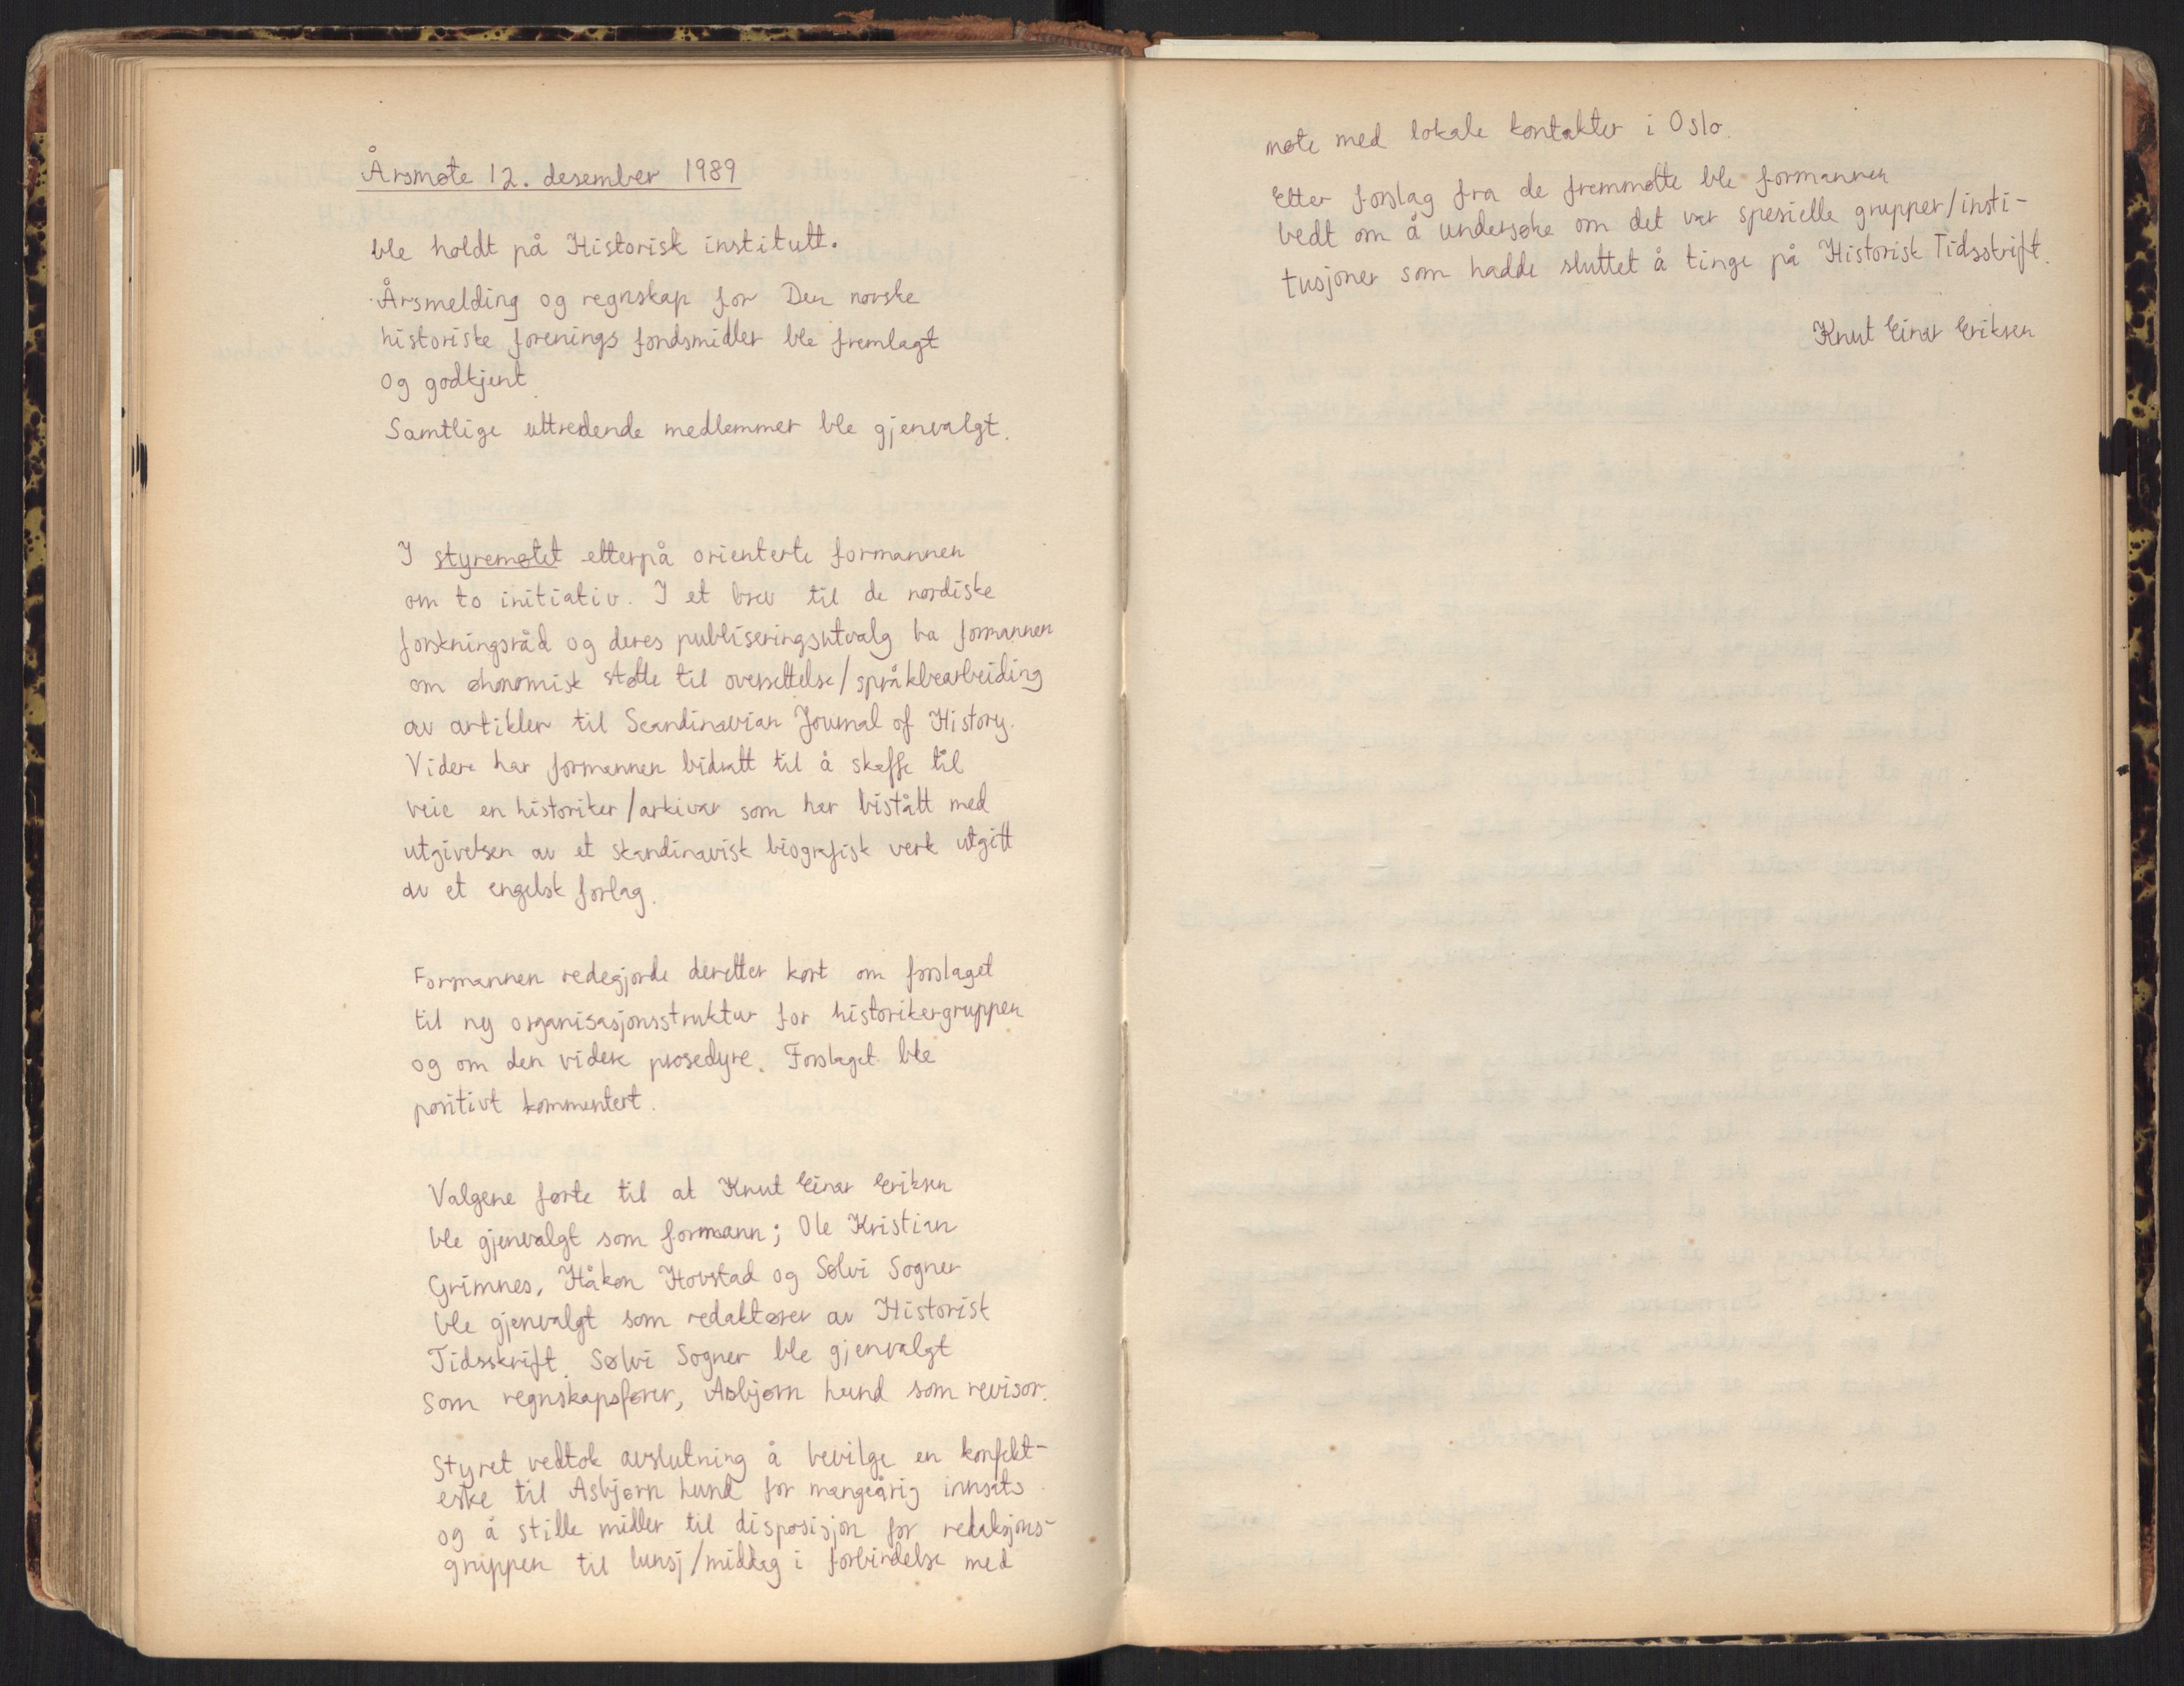 Årsmøte 12. desember 1989
ble holdt på Historisk institutt.
Årsmelding og regnskap for Den norske
historiske forenings fondsmidler ble fremlagt
og godkjent.
Samtlige uttredende medlemmer ble gjenvalgt.
I styremøtet etterpå orienterte formannen
om to initiativ. I et brev til de nordiske
forskningsråd og deres publiseringsutvalg ba formannen
om økonomisk støtte til oversettelse/språkbearbeiding
av artikler til Scandinavian Journal of History.
Videre har formannen bidratt til å skaffe til
veie en historiker/arkivar som har bistått med
utgivelsen av et skandinavisk biografisk verk utgitt
av et engelsk forlag.
Formannen redegjorde deretter kort om forslaget
til ny organisasjonsstruktur for historikergruppen
og om den videre prosedyre. Forslaget ble
positivt kommentert.
Valgene førte til at Knut Einar Eriksen
ble gjenvalgt som formann; Ole Kristian
Grimnes, Håkon Hovstad og Sølvi Sogner
ble gjenvalgt som redaktører av Historisk
Tidsskrift. Sølvi Sogner ble gjenvalgt
som regnskapsfører, Asbjørn Lund som revisor.
Styret vedtok avslutning å bevilge en konfekt-
eske til Asbjørn Lund for mangeårig innsats
og å stille midler til disposisjon for redaksjons-
gruppen til lunsj/middag i forbindelse med
møte med lokale kontakter i Oslo.
Etter forslag fra de fremmøtte ble formannen
bedt om å undersøke om det var spesielle grupper/insti-
tusjoner som hadde sluttet å tinge på Historisk Tidsskrift.
Knut Einar Eriksen